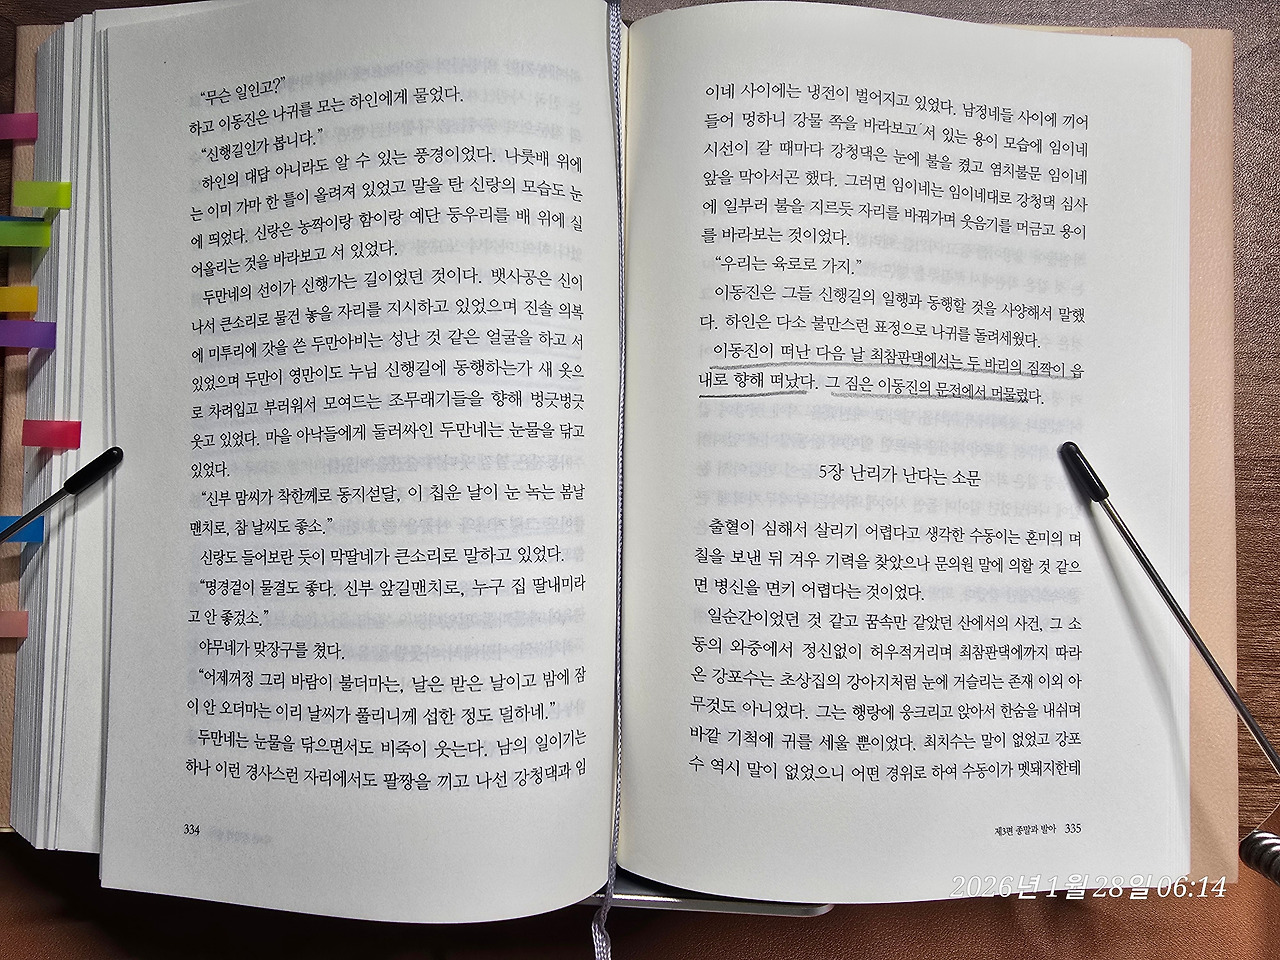 “무슨 일인고?”
하고 이동진은 나귀를 모는 하인에게 물었다.
“신행길인가 봅니다.”
하인의 대답 아니라도 알 수 있는 풍경이었다. 나룻배 위에
는 이미 가마 한 틀이 올려져 있었고 말을 탄 신랑의 모습도 눈
에 띄었다. 신랑은 농짝이랑 함이랑 예단 둥우리를 배 위에 실
어올리는 것을 바라보고 서 있었다.
두만네의 선이가 신행가는 길이었던 것이다. 뱃사공은 신이
나서 큰소리로 물건 놓을 자리를 지시하고 있었으며 진솔 의복
에 미투리에 갓을 쓴 두만아비는 성난 것 같은 얼굴을 하고 서
있었으며 두만이 영만이도 누님 신행길에 동행하는가 새 옷으
로 차려입고 부러워서 모여드는 조무래기들을 향해 벙긋벙긋
웃고 있었다. 마을 아낙들에게 둘러싸인 두만네는 눈물을 닦고
있었다.
“신부 맘씨가 착한께로 동지섣달, 이 칩운 날이 눈 녹는 봄날
맨치로, 참 날씨도 좋소.”
신랑도 들어보란 듯이 막딸네가 큰소리로 말하고 있었다.
“명경겉이 물결도 좋다. 신부 앞길맨치로, 누구 집 딸내미라
고 안 좋겄소.”
야무네가 맞장구를 쳤다.
“어제꺼정 그리 바람이 불더마는, 날은 받은 날이고 밤에 잠
이 안 오더마는 이리 날씨가 풀리니께 섭한 정도 덜하네.”
두만네는 눈물을 닦으면서도 비죽이 웃는다. 남의 일이기는
하나 이런 경사스런 자리에서도 팔짱을 끼고 나선 강청댁과 임
334
이네 사이에는 냉전이 벌어지고 있었다. 남정네들 사이에 끼어
들어 멍하니 강물 쪽을 바라보고 서 있는 용이 모습에 임이네
시선이 갈 때마다 강청댁은 눈에 불을 켰고 염치불문 임이네
앞을 막아서곤 했다. 그러면 임이네는 임이네대로 강청댁 심사
에 일부러 불을 지르듯 자리를 바꿔가며 웃음기를 머금고 용이
를 바라보는 것이었다.
“우리는 육로로 가지.”
이동진은 그들 신행길의 일행과 동행할 것을 사양해서 말했
다. 하인은 다소 불만스런 표정으로 나귀를 돌려세웠다.
이동진이 떠난 다음 날 최참판댁에서는 두 바리의 짐짝이 읍
내로 향해 떠났다. 그 짐은 이동진의 문전에서 머물렀다.
5장 난리가 난다는 소문
출혈이 심해서 살리기 어렵다고 생각한 수동이는 혼미의 며
칠을 보낸 뒤 겨우 기력을 찾았으나 문의원 말에 의할 것 같으
면 병신을 면키 어렵다는 것이었다.
일순간이었던 것 같고 꿈속만 같았던 산에서의 사건, 그 소
동의 와중에서 정신없이 허우적거리며 최참판댁에까지 따라
온 강포수는 초상집의 강아지처럼 눈에 거슬리는 존재 이외 아
무것도 아니었다. 그는 행랑에 웅크리고 앉아서 한숨을 내쉬며
바깥 기척에 귀를 세울 뿐이었다. 최치수는 말이 없었고 강포
수 역시 말이 없었으니 어떤 경위로 하여 수동이가 멧돼지한테
제3편 종말과 발아 335
2026년 1월 28일 06:14